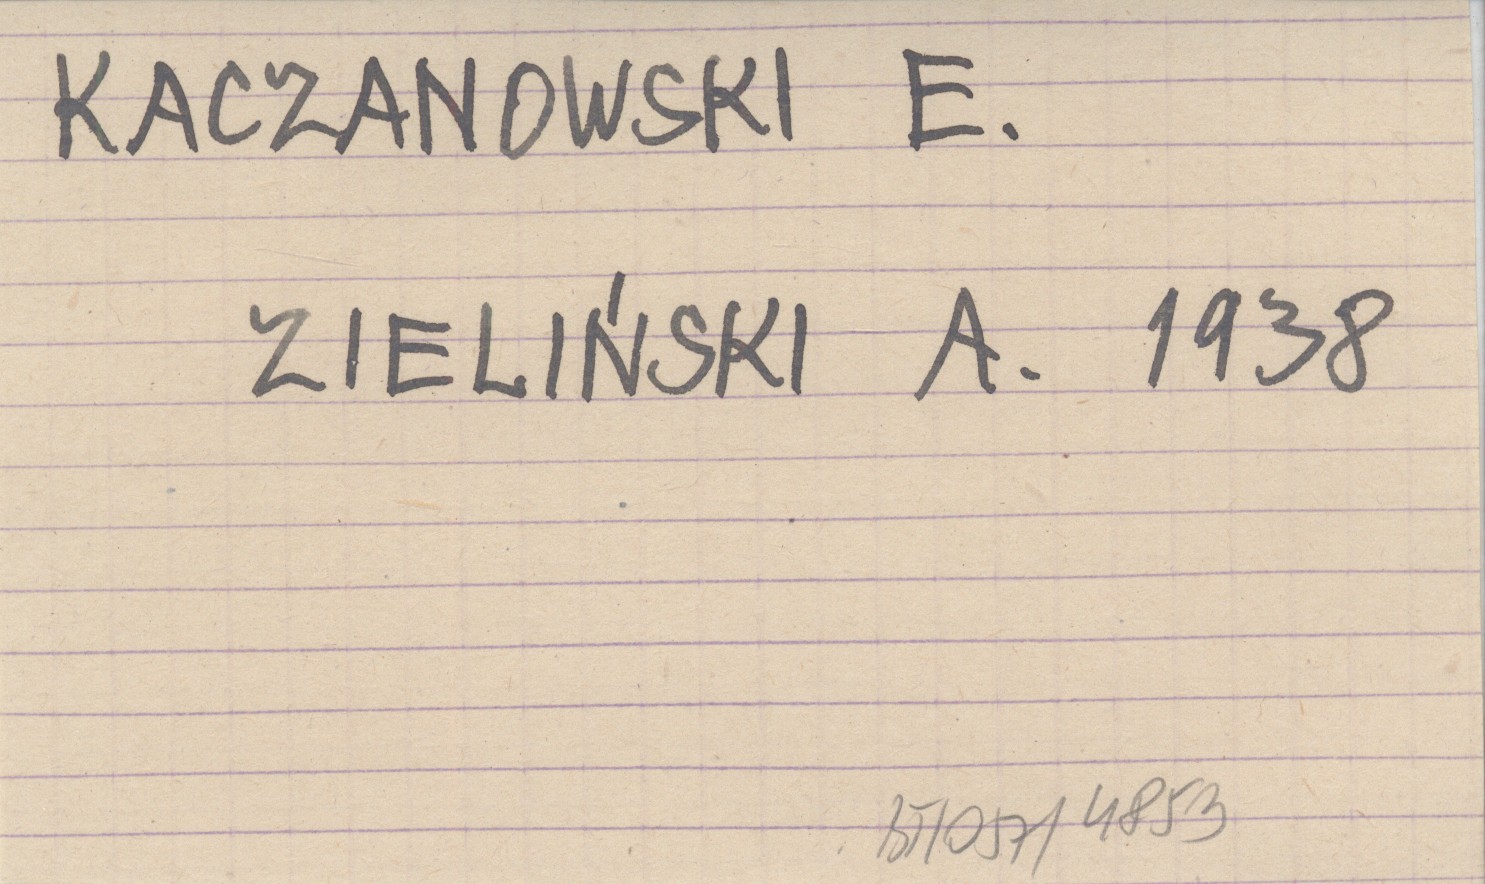 KACZANOWSKI E.
ZIELIŃSKI A. 1938
4853